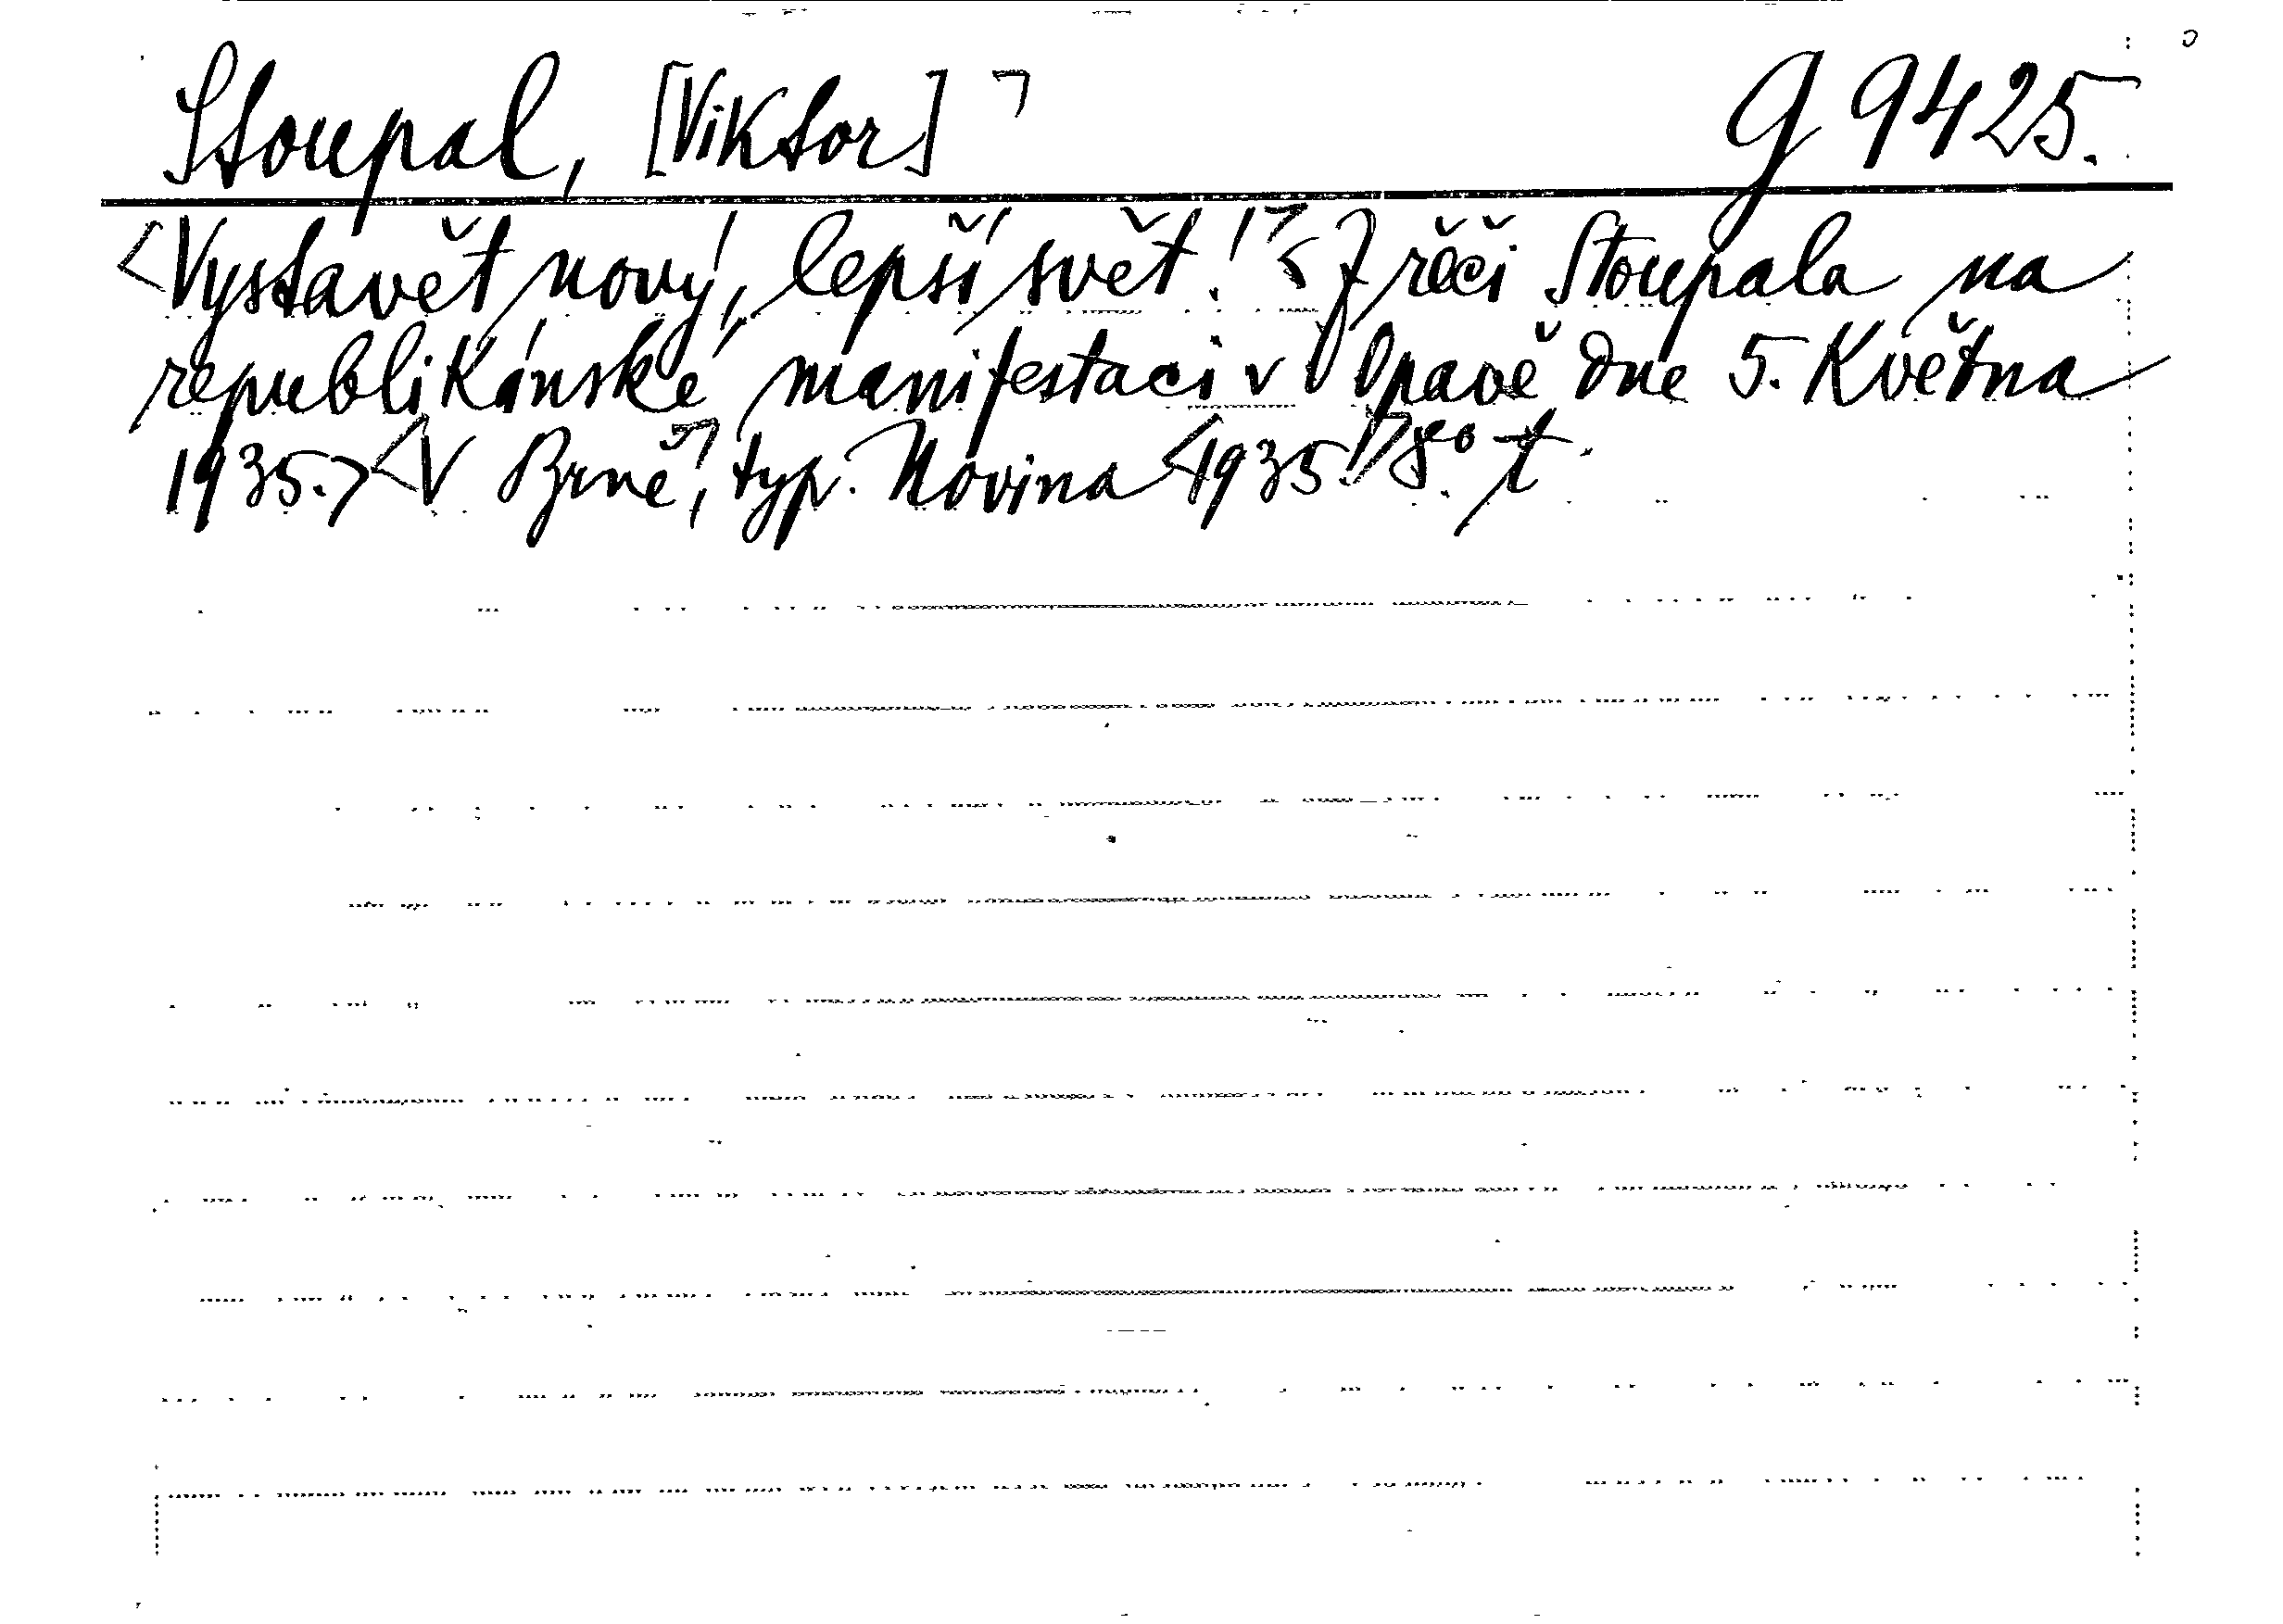 Stoupal, [Viktor] ⌝ G 9425.
<Vystavět nový, lepší svět!> <Z řeči Stoupala na
republikánské manifestaci v Opavě dne 5. Května
1935.> <V Brně>, typ. Novina <1935.> 8° t.